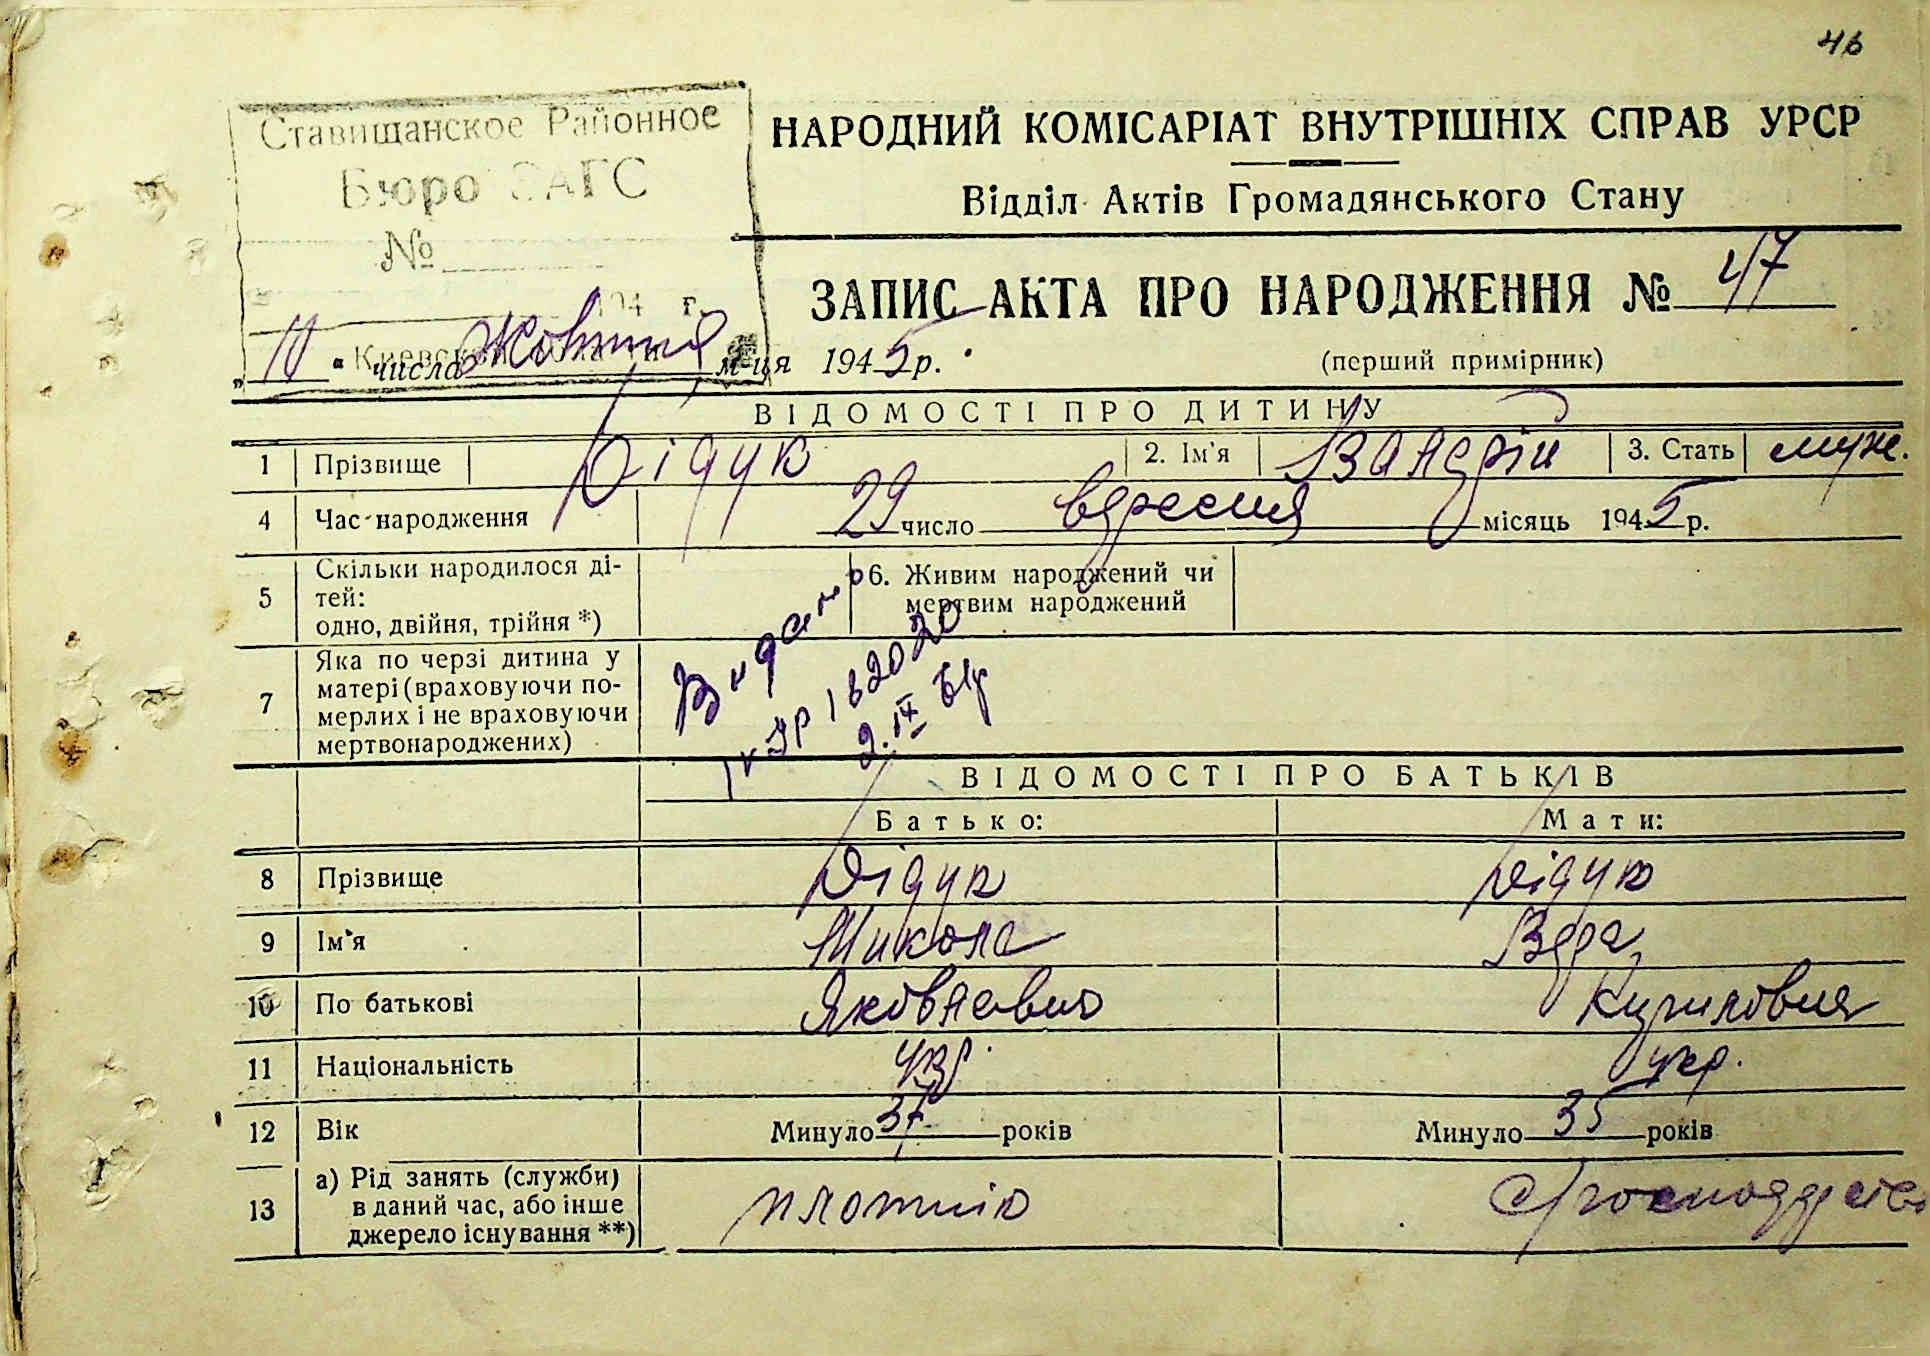 46
Ставищанское Районное
Бюро ЗАГС
№
194 г.
НАРОДНИЙ КОМІСАРІАТ ВНУТРІШНІХ СПРАВ УРСР
Відділ Актів Громадянського Стану
ЗАПИС АКТА ПРО НАРОДЖЕННЯ № 47
„ числа Жовтня м-ця 1945 р.
(перший примірник)
ВІДОМОСТІ ПРО ДИТИНУ
1 Прізвище Дідук 2. Ім'я Валерій 3. Стать муж.
4 Час народження 29 число вересня місяць 1945 р.
5 Скільки народилося ді-
тей:
одно, двійня, трійня *)
6. Живим народжений чи
мертвим народжений
7 Яка по черзі дитина у
матері (враховуючи по-
мерлих і не враховуючи
мертвонароджених)
ВІДОМОСТІ ПРО БАТЬКІВ
Батько: Мати:
8 Прізвище Дідук Дідук
9 Ім'я Микола Вера
10 По батькові Яковлевич Куриловна
11 Національність укр. укр.
12 Вік Минуло 37 років Минуло 35 років
13 а) Рід занять (служби)
в даний час, або інше
джерело існування **)
плотнік